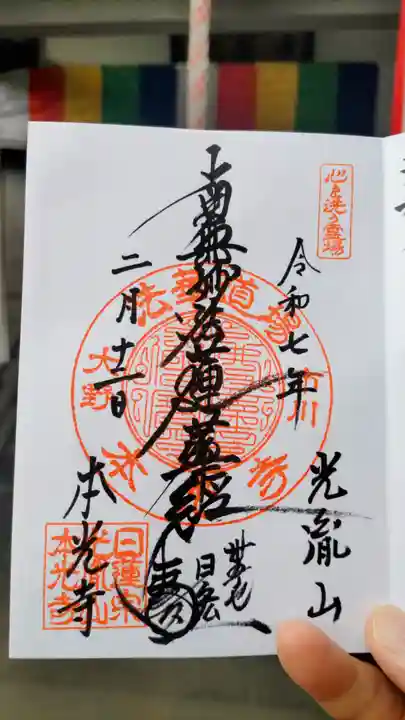 心を洗う霊場
令和七年
光胤山
南無妙法蓮華経
二月十一日
本光寺
法華道場
市川
大野
日蓮宗
光胤山
本光寺